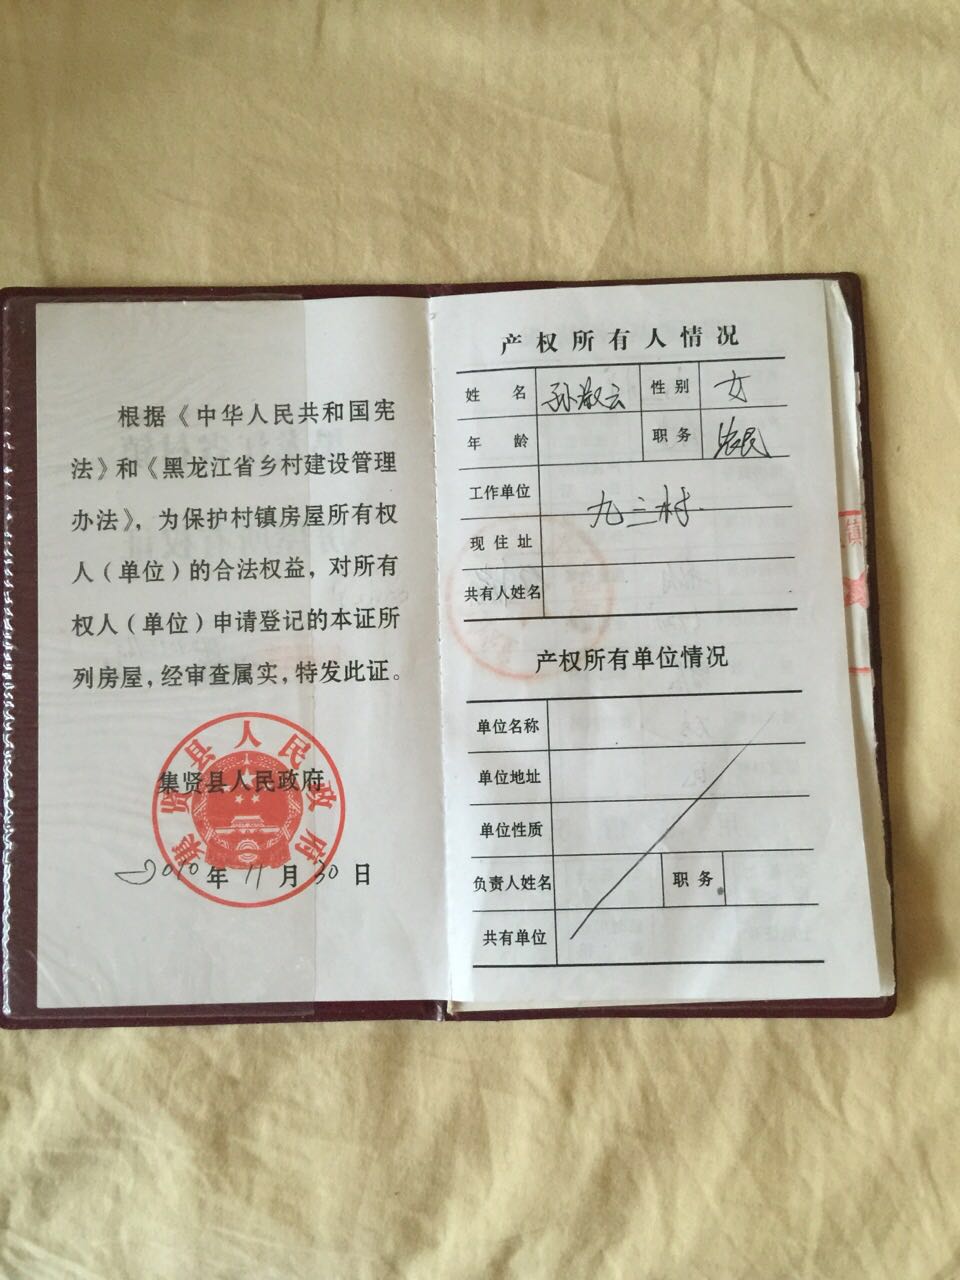 根据《中华人民共和国宪
法》和《黑龙江省乡村建设管理
办法》，为保护村镇房屋所有权
人（单位）的合法权益，对所有
权人（单位）申请登记的本证所
列房屋，经审查属实，特发此证。
集贤县人民政府
集贤县人民政府
2010年11月30日
产权所有人情况
姓名 孙淑云 性别 女
年龄 职务 农民
工作单位
九三村
现住址
共有人姓名
产权所有单位情况
单位名称
单位地址
单位性质
负责人姓名 职务
共有单位